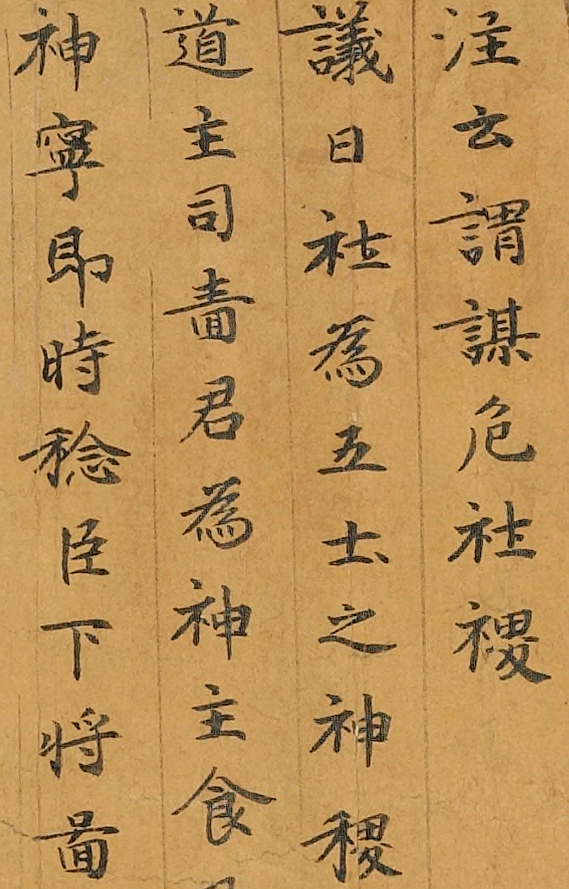 注云謂謀危社稷
議曰社為五土之神稷
道主司嗇君為神主食
神寧即時稔臣下將啚